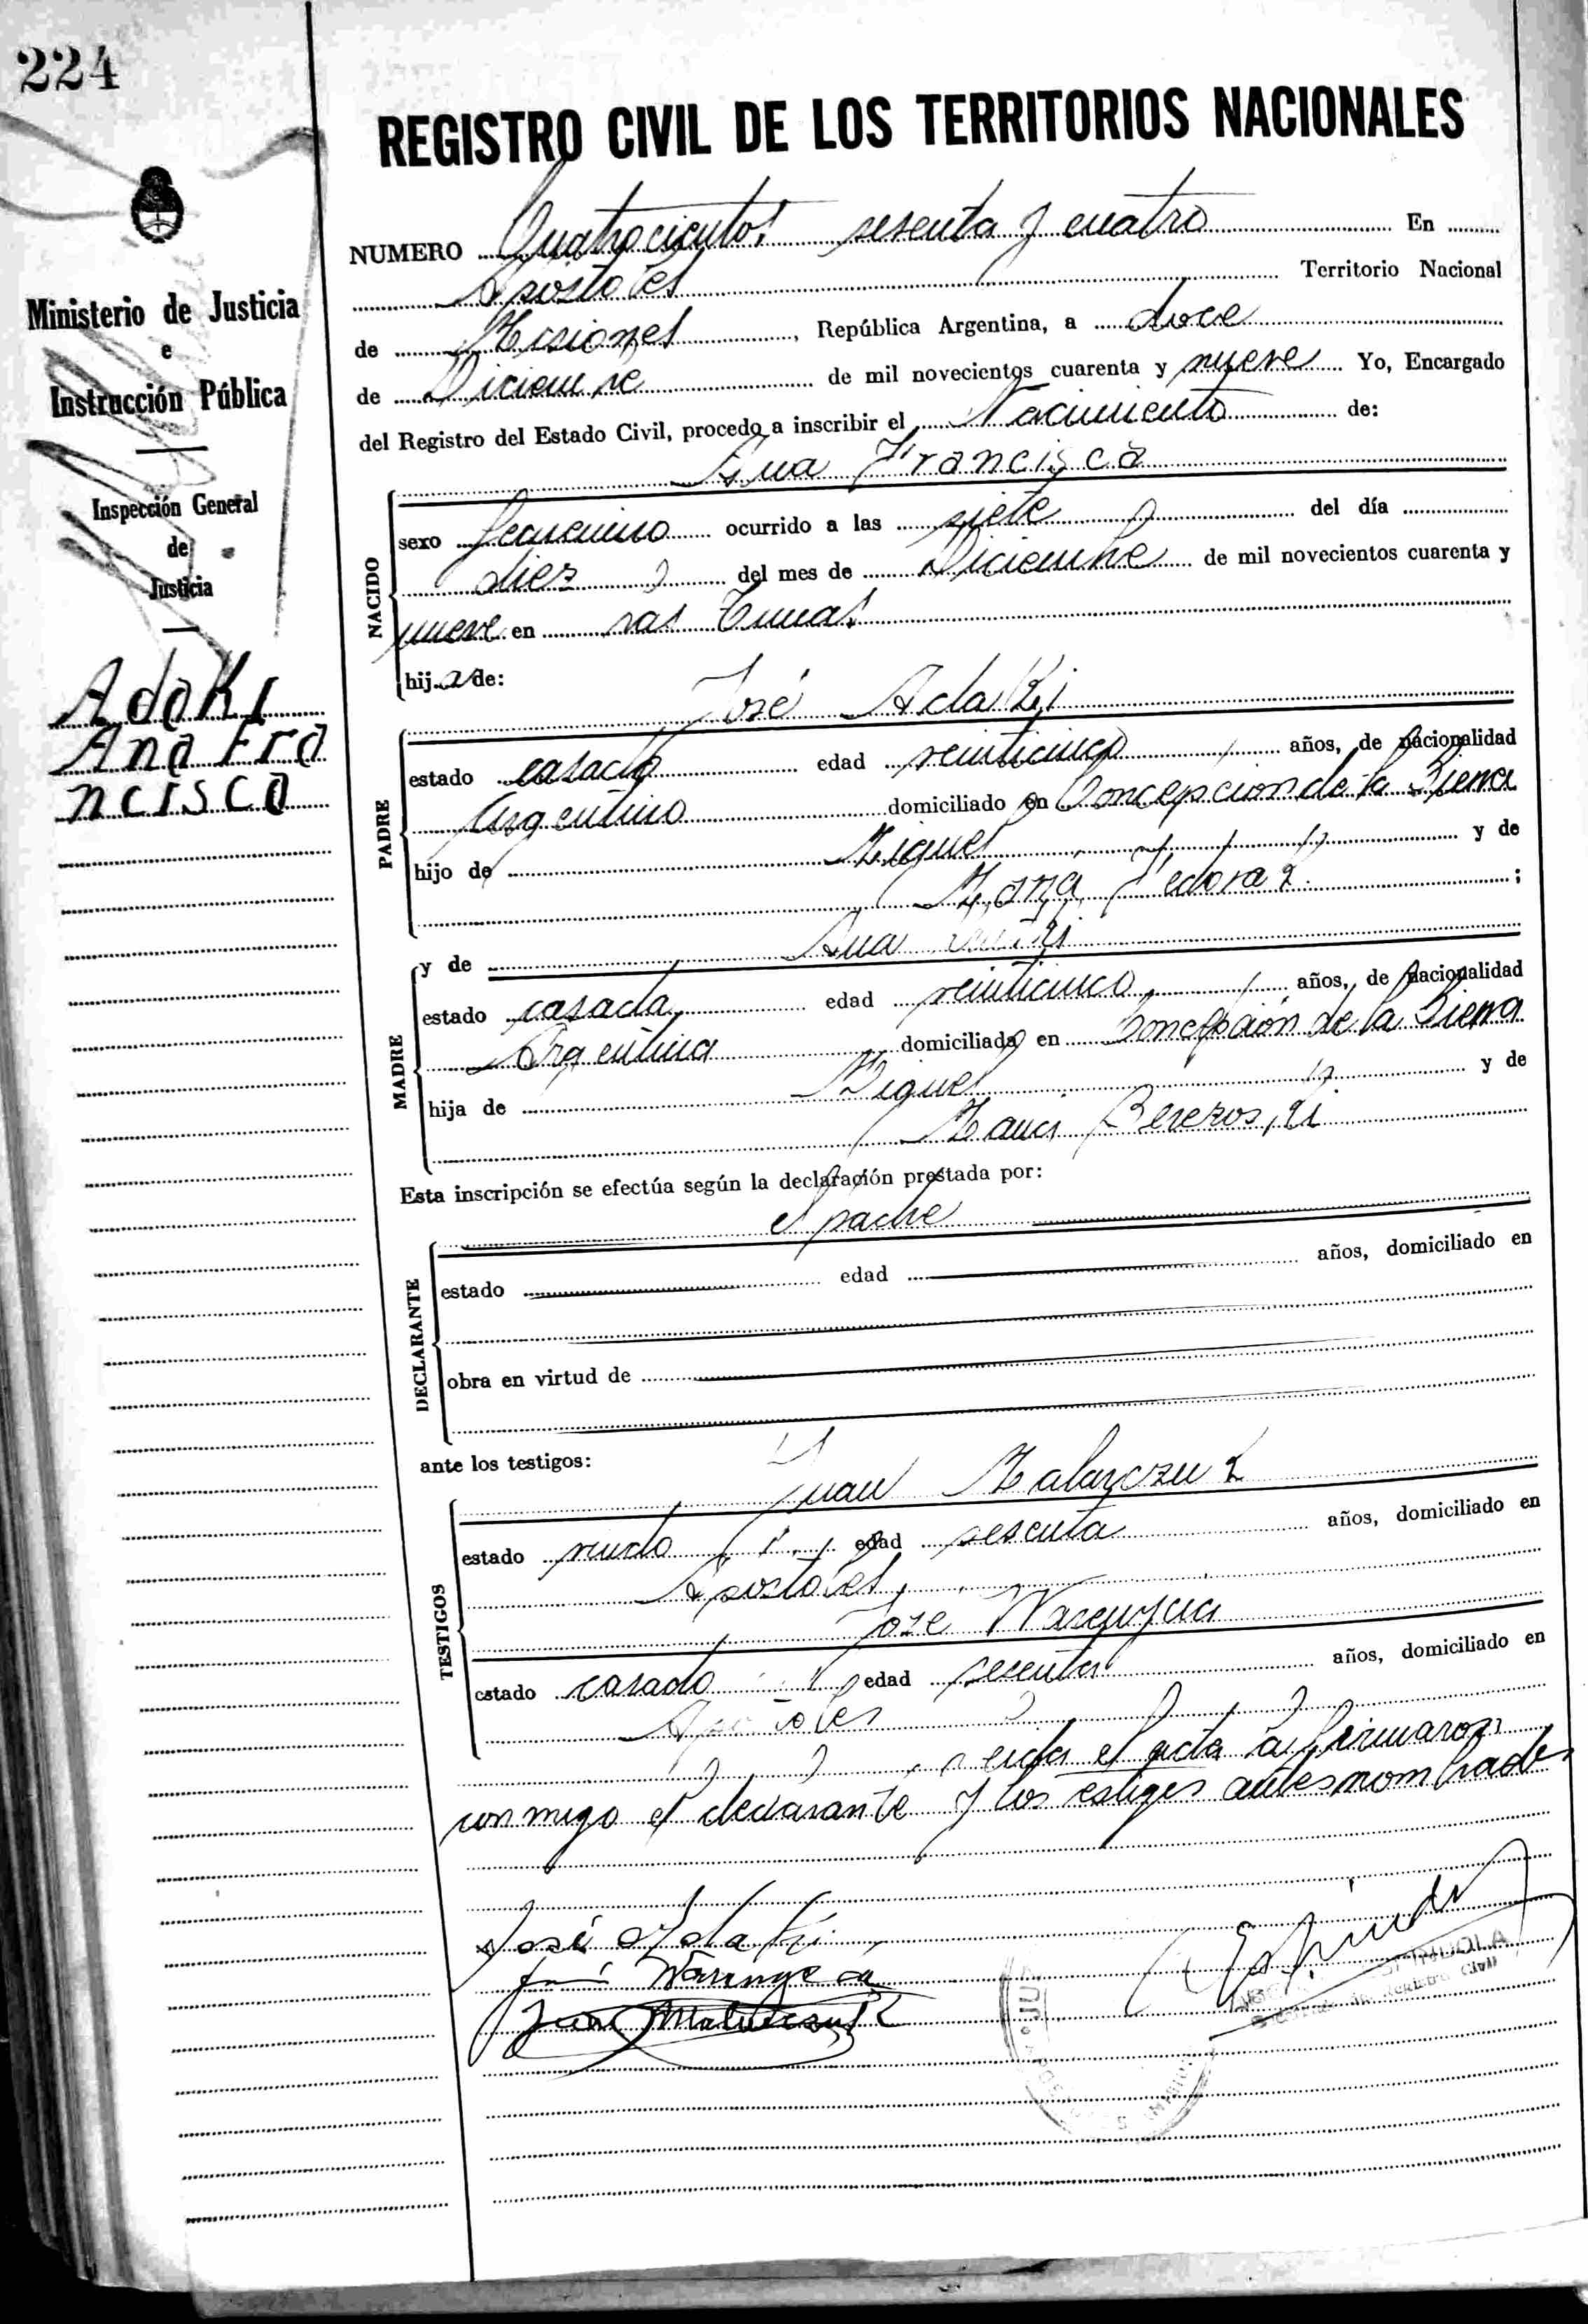 224
REGISTRO CIVIL DE LOS TERRITORIOS NACIONALES
Ministerio de Justicia
e
Instrucción Pública
Inspección General
de
Justicia
Adaki
Ana Fra
ncisca
NUMERO Quatrocientos sesenta y cuatro En
Apostoles Territorio Nacional
de Misiones, República Argentina, a doce
de Diciembre de mil novecientos cuarenta y nueve Yo, Encargado
del Registro del Estado Civil, procedo a inscribir el Nacimiento de:
Ana Francisca
NACIDO
sexo femenino ocurrido a las siete del día
diez del mes de Diciembre de mil novecientos cuarenta y
nueve en Las Tunas
hija de:
José Adaki
PADRE
estado casado edad veinticinco años, de nacionalidad
Argentino domiciliado en Concepcion de la Sierra
hijo de Miguel y de
Maria ;
y de Ana
MADRE
estado casada edad veinticinco años, de nacionalidad
Argentina domiciliada en Concepcion de la Sierra
hija de Miguel y de
Maria
Esta inscripción se efectúa según la declaración prestada por:
el padre
DECLARANTE
estado edad años, domiciliado en
obra en virtud de
ante los testigos:
Juan Malarczuk
TESTIGOS
estado viudo edad sesenta años, domiciliado en
Apostoles
José
estado casado edad sesenta años, domiciliado en
Apostoles
Leida el acta la firmaron
conmigo el declarante y los testigos antes nombrados
José Adaki
Juan Malarczuk